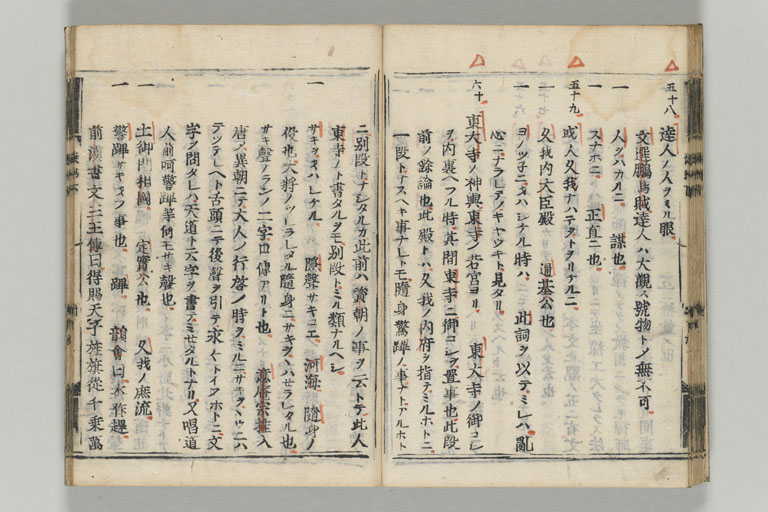 五十八 達人ノ人ヲミル眼
文選鵬鳥賦達人ハ大觀ス號物トノ無不可
一 人ヲハカルニ 謀也
一 スナホニ 正直ニ也
五十九 或人久我ナハテヲトヲリケルニ
一 久我内大臣殿 通基公也
ヨノツ子ニヲハシケル時ハ 此詞ヲ以テミレハ亂
心ニナラレテノキヤウキト見タリ
六十 東大寺ノ神輿東寺ノ若宮ヨリ 東大寺ノ御コシ
ヲ内裏ヘフル時其間東寺ニ御コシヲ置事也此段
前ノ餘論也此殿トハ久我ノ内府ヲ指テミルホトニ
一段トナスヘキ事ナレトモ隨身警蹕ノ事ナトアルホト
ニ別段トナシタルカ此前ハ賓朝ノ事ヲ云トテ此人
東寺ノト書タルヲモ別段トミル類ナルヘシ
一 サキヲヲハレケル 隱聲サキコエ 河海 隨身ノ
役也大將ノツラレタル隨身ニサキヲヲハセラレタル也
サキ聲ノランノ二字口傳アリト也 意庵宗桂入
唐ノ異朝ニテ大人ノ行啓ノ時ヲミルニサキヲヲウニハ
テンテレヘト舌頭ニテ後聲ヲ引テ求クトイフホトニ文
字ヲ問タレハ天道ト云字ヲ書テミセタルトナリ又唱道
人前呵警蹕等何モサキ聲也
一 土御門相國 定實公也 久我ノ庶流
一 警蹕サキヲヲフ事也 蹕 韻會曰本作趩
前漢書文三王傳曰得賜天子旌旗從千乗萬